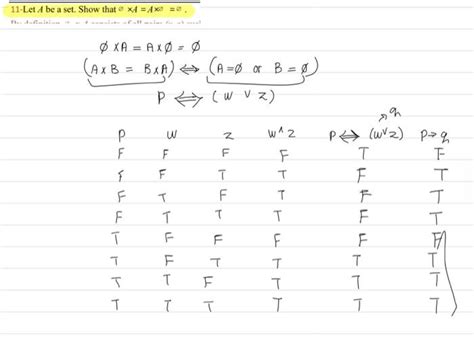 11-Let A be a set. Show that ∅ ×A = A×∅ = ∅ .
∅ × A = A × ∅ = ∅
(A × B = B × A) ⟺ (A = ∅ or B = ∅)
P ⟺ (W ∨ Z)
q
P W Z W ^ Z P ⟺ (W ∨ Z) P → q
F F F F T F
F F T T F T
F T F T F T
F T T T F T
T F F F F F
T F T T T T
T T F T T T
T T T T T T